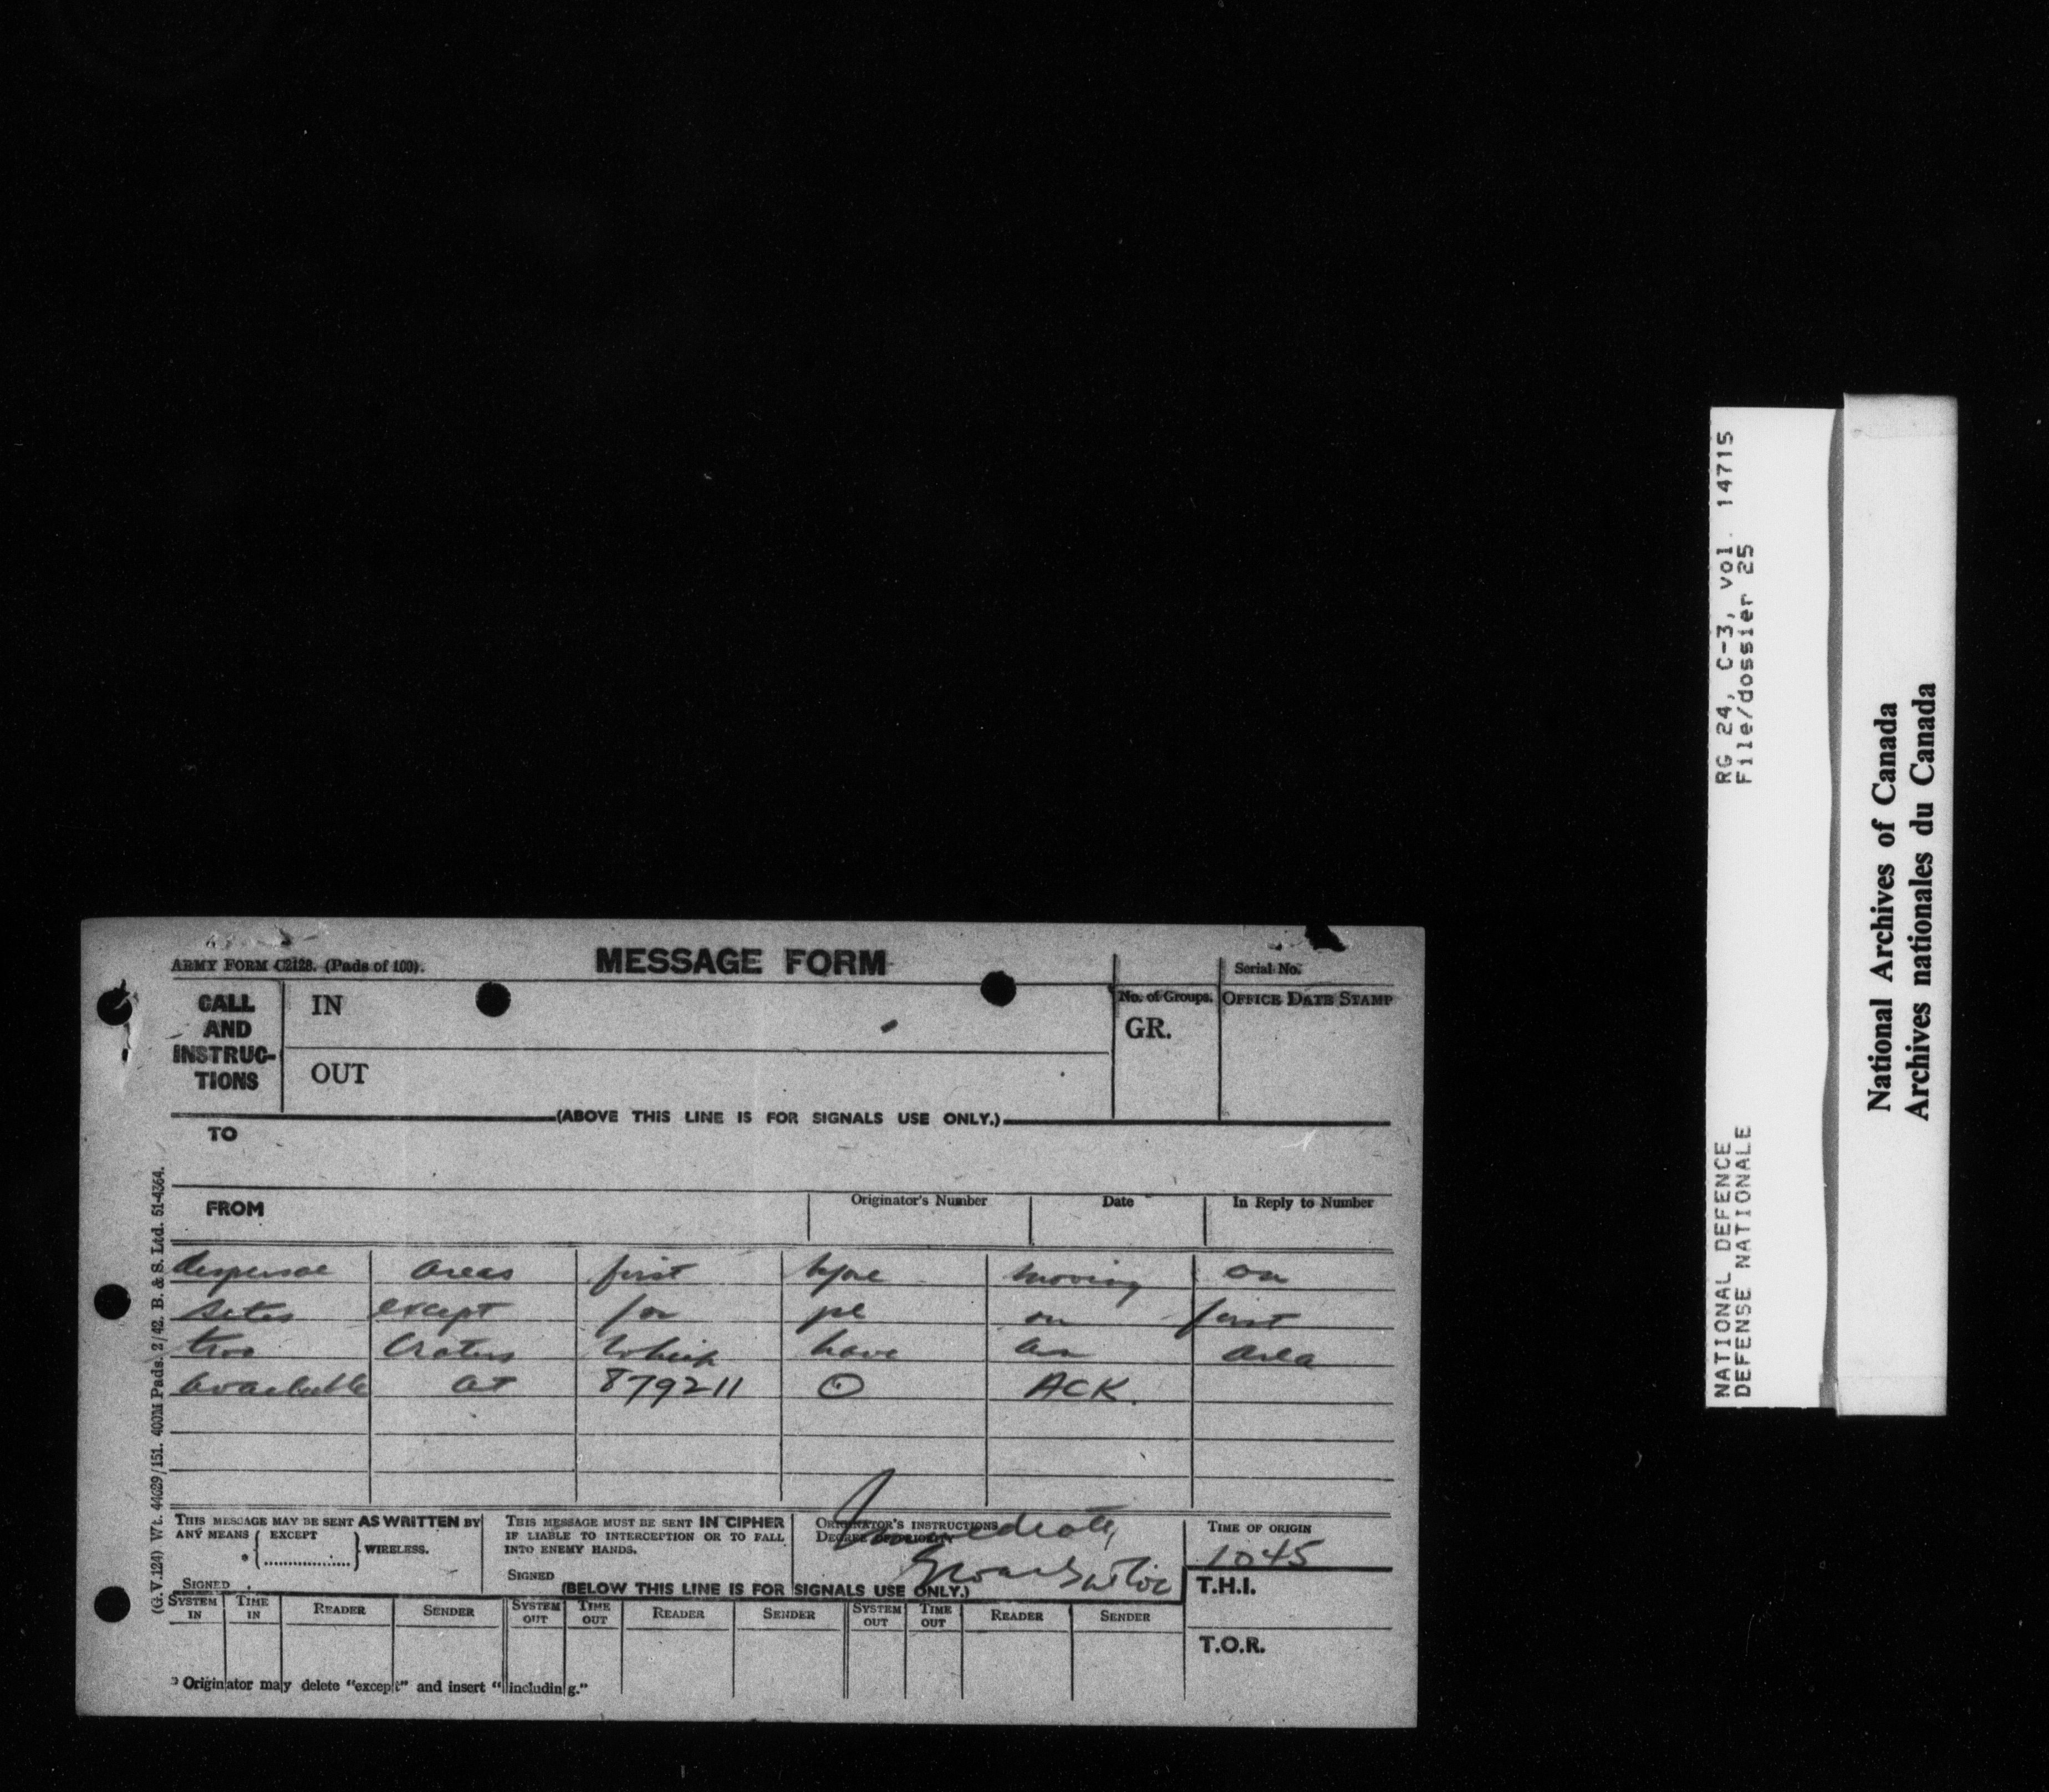 ARMY FORM C2128. (Pads of 100).
MESSAGE FORM
Serial No.
CALL
AND
INSTRUC-
TIONS
IN
OUT
No. of Groups.
GR.
OFFICE DATE STAMP
(ABOVE THIS LINE IS FOR SIGNALS USE ONLY.)
TO
FROM
Originator's Number
Date
In Reply to Number
dispersal areas first before moving on
sites except for pl on first
two craters which have an area
available at 879211 ⊙ ACK.
THIS MESSAGE MAY BE SENT AS WRITTEN BY
ANY MEANS { EXCEPT
* { .................. } WIRELESS.
SIGNED
THIS MESSAGE MUST BE SENT IN CIPHER
IF LIABLE TO INTERCEPTION OR TO FALL
INTO ENEMY HANDS.
SIGNED
ORIGINATOR'S INSTRUCTIONS
DEGREE OF PRIORITY
Immediate
TIME OF ORIGIN
1045
T.H.I.
T.O.R.
(BELOW THIS LINE IS FOR SIGNALS USE ONLY.)
SYSTEM IN TIME IN READER SENDER SYSTEM OUT TIME OUT READER SENDER SYSTEM OUT TIME OUT READER SENDER
* Originator may delete "except" and insert "including."
(G.V.124) Wt. 44029/151. 400M Pads. 2/42. B. & S. Ltd. 51-4364.
RG 24, C-3, vol. 14715
File/dossier 25
NATIONAL DEFENCE
DEFENSE NATIONALE
National Archives of Canada
Archives nationales du Canada